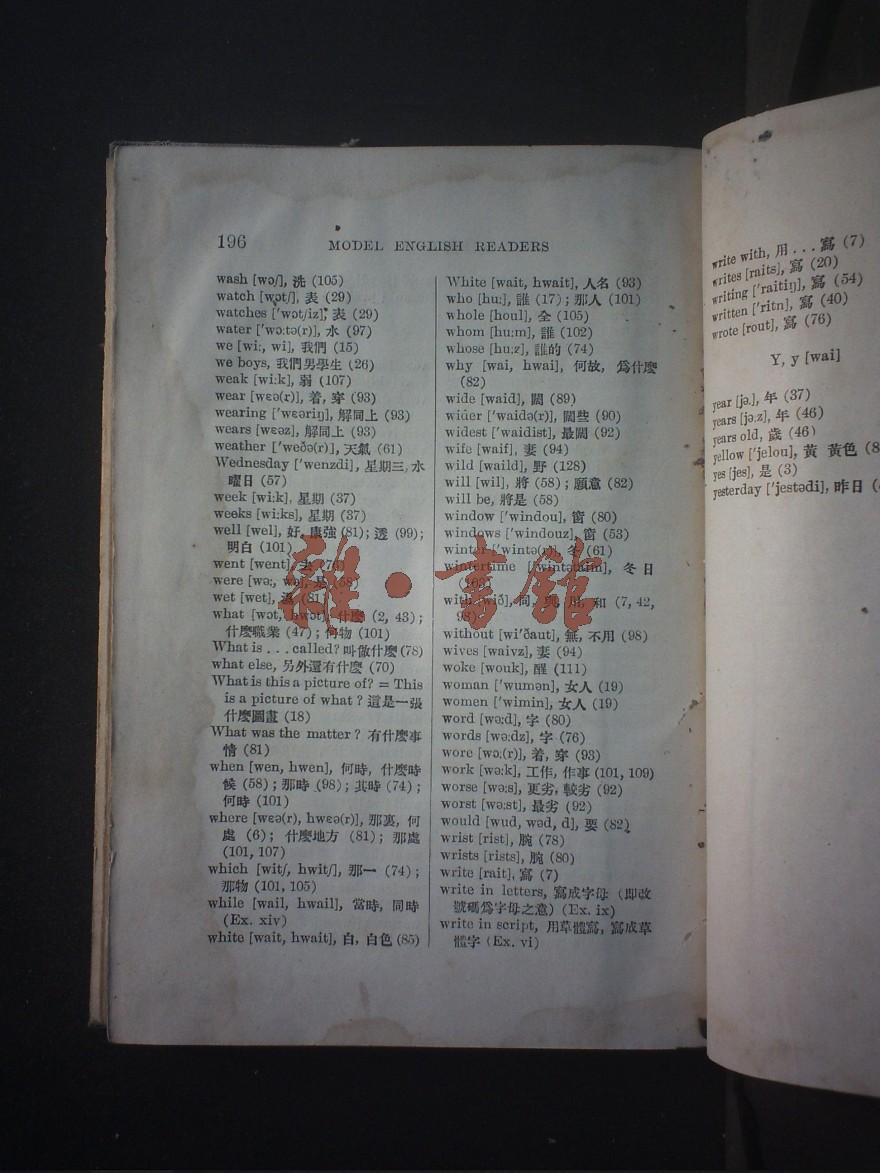 196
MODEL ENGLISH READERS
wash [wɔʃ], 洗 (105)
watch [wɔtʃ], 表 (29)
watches ['wɔtʃiz], 表 (29)
water ['wɔ:tə(r)], 水 (97)
we [wi:, wi], 我們 (15)
we boys, 我們男學生 (26)
weak [wi:k], 弱 (107)
wear [wɛə(r)], 着, 穿 (93)
wearing ['wɛəriŋ], 解同上 (93)
wears [wɛəz], 解同上 (93)
weather ['weðə(r)], 天氣 (61)
Wednesday ['wenzdi], 星期三, 水
曜日 (57)
week [wi:k], 星期 (37)
weeks [wi:ks], 星期 (37)
well [wel], 好, 康強 (81); 透 (99);
明白 (101)
went [went], 去
were [wə:, wə], 是 (58)
wet [wet], (81)
what [wɔt, hwɔt], 什麼 (2, 43);
什麼職業 (47); 何物 (101)
What is ... called? 叫做什麼 (78)
what else, 另外還有什麼 (70)
What is this a picture of? = This
is a picture of what? 這是一張
什麼圖畫 (18)
What was the matter? 有什麼事
情 (81)
when [wen, hwen], 何時, 什麼時
候 (58); 那時 (98); 其時 (74);
何時 (101)
where [wɛə(r), hwɛə(r)], 那裏, 何
處 (6); 什麼地方 (81); 那處
(101, 107)
which [witʃ, hwitʃ], 那一 (74);
那物 (101, 105)
while [wail, hwail], 當時, 同時
(Ex. xiv)
white [wait, hwait], 白, 白色 (85)
White [wait, hwait], 人名 (93)
who [hu:], 誰 (17); 那人 (101)
whole [houl], 全 (105)
whom [hu:m], 誰 (102)
whose [hu:z], 誰的 (74)
why [wai, hwai], 何故, 爲什麼
(82)
wide [waid], 闊 (89)
wider ['waidə(r)], 闊些 (90)
widest ['waidist], 最闊 (92)
wife [waif], 妻 (94)
wild [waild], 野 (128)
will [wil], 將 (58); 願意 (82)
will be, 將是 (58)
window ['windou], 窗 (80)
windows ['windouz], 窗 (53)
winter ['wintə(r)], 冬 (61)
wintertime ['wintətaim], 冬日
(103)
with [wið], 同, 與, 用, 和 (7, 42,
98)
without [wi'ðaut], 無, 不用 (98)
wives [waivz], 妻 (94)
woke [wouk], 醒 (111)
woman ['wumən], 女人 (19)
women ['wimin], 女人 (19)
word [wə:d], 字 (80)
words [wə:dz], 字 (76)
wore [wɔ:(r)], 着, 穿 (93)
work [wə:k], 工作, 作事 (101, 109)
worse [wə:s], 更劣, 較劣 (92)
worst [wə:st], 最劣 (92)
would [wud, wəd, d], 要 (82)
wrist [rist], 腕 (78)
wrists [rists], 腕 (80)
write [rait], 寫 (7)
write in letters, 寫成字母 (即改
號碼爲字母之意) (Ex. ix)
write in script, 用草體寫, 寫成草
體字 (Ex. vi)
雜·書館
write with, 用 ... 寫 (7)
writes [raits], 寫 (20)
writing ['raitiŋ], 寫 (54)
written ['ritn], 寫 (40)
wrote [rout], 寫 (76)
Y, y [wai]
year [jə:], 年 (37)
years [jə:z], 年 (46)
years old, 歲 (46)
yellow ['jelou], 黃 黃色 (8
yes [jes], 是 (3)
yesterday ['jestədi], 昨日